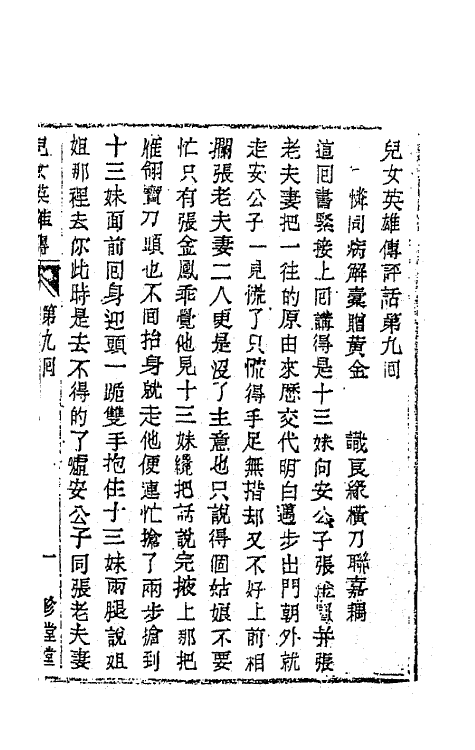 兒女英雄傳評話第九囘
憐同病解囊贈黃金　識良緣橫刀聯嘉耦
這囘書緊接上囘講得是十三妹向安公子張金鳳並張
老夫妻把一往的原由來歷交代明白邁步出門朝外就
走安公子一見慌了只慌得手足無措却又不好上前相
攔張老夫妻二人更是沒了主意也只說得個姑娘不要
忙只有張金鳳乖覺他見十三妹纔把話說完掖上那把
雁翎寶刀頭也不囘抬身就走他便連忙搶了兩步搶到
十三妹面前囘身迎頭一跪雙手抱住十三妹兩腿說姐
姐那裡去你此時是去不得的了嚧安公子同張老夫妻
兒女英雄傳
第九囘
一
珍堂堂